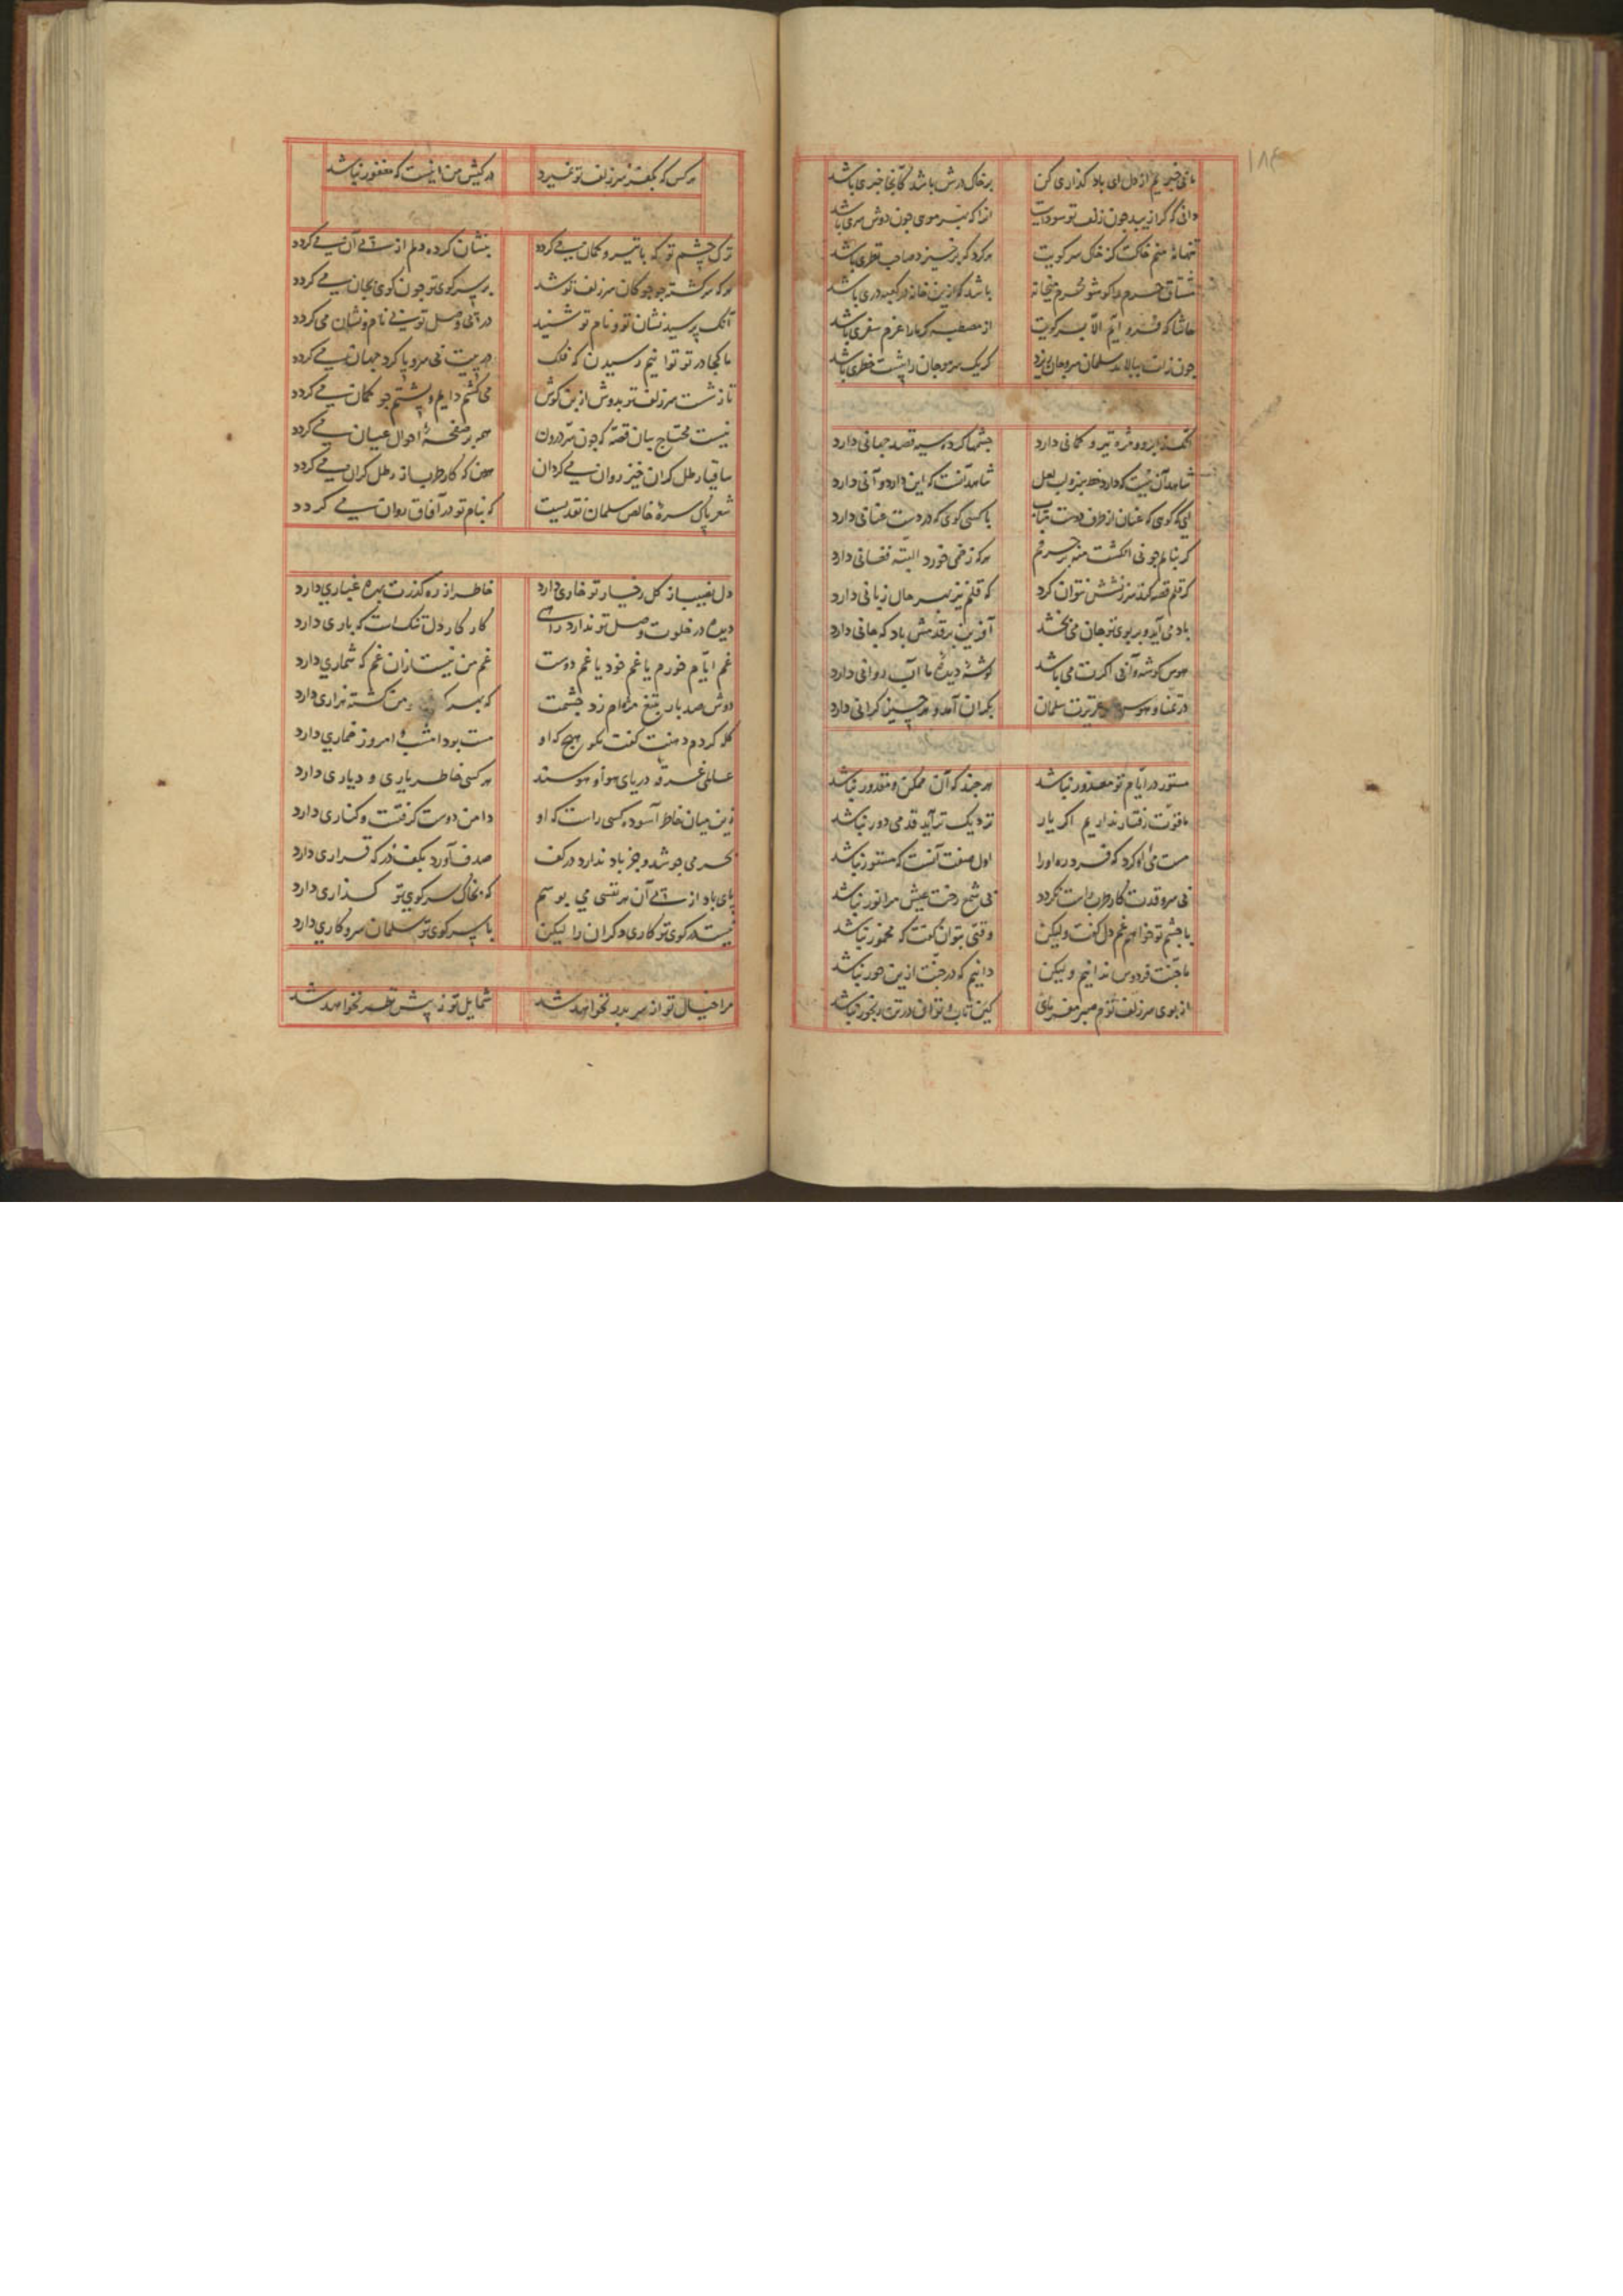 ۱۸۴
ما بی خبریم از دل ای باد گذاری کن
بر خاک درش باشد کانجا خبری باشد
دانی که کرا زیبد چون زلف تو سودایت
انرا که بهر موی چون دوش سری باشد
تنها نه منم خاکت کز خاک سر کویت
هر کرد که برخیزد صاحب نظری باشد
مشتاق حرم را کو شو محرم میخانه
باشد که ازین خانه در کعبه دری باشد
حاشا که فرو آیم الا بسر کویت
از مصطبه کر ما را عزم سفری باشد
چون زلف ببالا بد سلمان سر و جان بازد
کر یک سر مو جان را پیشت خطری باشد
آنک از ابرو و مژه تیر و کمانی دارد
چشمها کرده سیه قصد جهانی دارد
شاهد آن نیست که دارد خط سبز و لب لعل
شاهد آنست که این دارد و آنی دارد
ای که کوی که عنان از طرف دوست بتاب
با کسی کوی که در دست عنانی دارد
کر بنالم چو نی انکشت منه بر حرفم
هر که زخمی خورد البته فغانی دارد
کر قلم قصه کند سرزنشش نتوان کرد
که قلم نیز بهر حال زبانی دارد
باد می آید و بر بوی تو جان می بخشد
آفرین بر قدمش باد که جانی دارد
هوس کوشه و آبی اکرت می باشد
کوشهٔ دیدهٔ ما آب روانی دارد
در تمنا و هوس عمر عزیزت سلمان
بکران آمد و هر چیز کرانی دارد
مستور در ایام تو معذور نباشد
هر چند که آن ممکن و مقدور نباشد
ما قوت رفتار نداریم اکر یار
نزدیک تر آید قدمی دور نباشد
مست می او کرد که فرد ره او را
اول صفت آنست که مستور نباشد
بی سرو قدت کار طرب راست نکردد
بی شمع رخت عیش مرا نور نباشد
با چشم تو خواهم غم دل کفت ولیکن
وقتی بتوان کفت که مخمور نباشد
ما جنت فردوس ندانیم ولیکن
دانیم که در جنت ازین حور نباشد
از بوی سر زلف توام صبر مفرمای
کین تاب و توان در تن رنجور نباشد
هر کس که بکفر سر زلف تو نمیرد
در کیش من اینست که مغفور نباشد
ترک چشم تو که با تیر و کمان می کردد
بنشان کرده دلم از پی آن می کردد
هر که سرکشته چو چوکان سر زلف تو شد
بر سر کوی تو چون کوی بجان می کردد
آنک پرسید نشان تو و نام تو شنید
در پی وصل تو بی نام و نشان می کردد
ما کجا در تو توانیم رسیدن که فلک
در پیت بی سر و پا کرد جهان می کردد
تا زشست سر زلف تو بدوش از بن کوش
می کشم دایم و پشتم چو کمان می کردد
نیست محتاج بیان قصه که چون سر درون
همه بر صفحهٔ احوال عیان می کردد
ساقیا رطل کران خیز روان می کردان
هین که کار طرب از رطل کران می کردد
شعر پاک سرهٔ خالص سلمان نقدیست
که بنام تو در آفاق روان می کردد
دل نصیب از کل رخسار تو خاری دارد
خاطر از ره کذرت بهره غباری دارد
دیده در خلوت وصل تو ندارد راهی
کار کار دل تنک است که باری دارد
غم ایام خورم یا غم خود یا غم دوست
غم من نیست از آن غم که شماری دارد
دوش صد بار بتیغ مژه ام زد چشمت
که بهر من کشته نزاری دارد
کله کردم دهنت کفت مکو هیچ که او
مست بود امشب و امروز خماری دارد
عالمی غرقهٔ دریای هوا و هوسند
هر کسی خاطر یاری و دیاری دارد
زین میان خاطر آسوده کسی راست که او
دامن دوست کرفتست و کناری دارد
بحر می جوشد و جز باد ندارد در کف
صدف آورد بکف در که قراری دارد
پای باد از پی آن هر نفسی می بوسم
که بخاک سر کوی تو کذاری دارد
نیست در کوی تو کاری دکران را لیکن
با سر کوی تو سلمان سر و کاری دارد
مرا خیال تو از سر بدر نخواهد شد
شمایل تو ز پیش نظر نخواهد شد